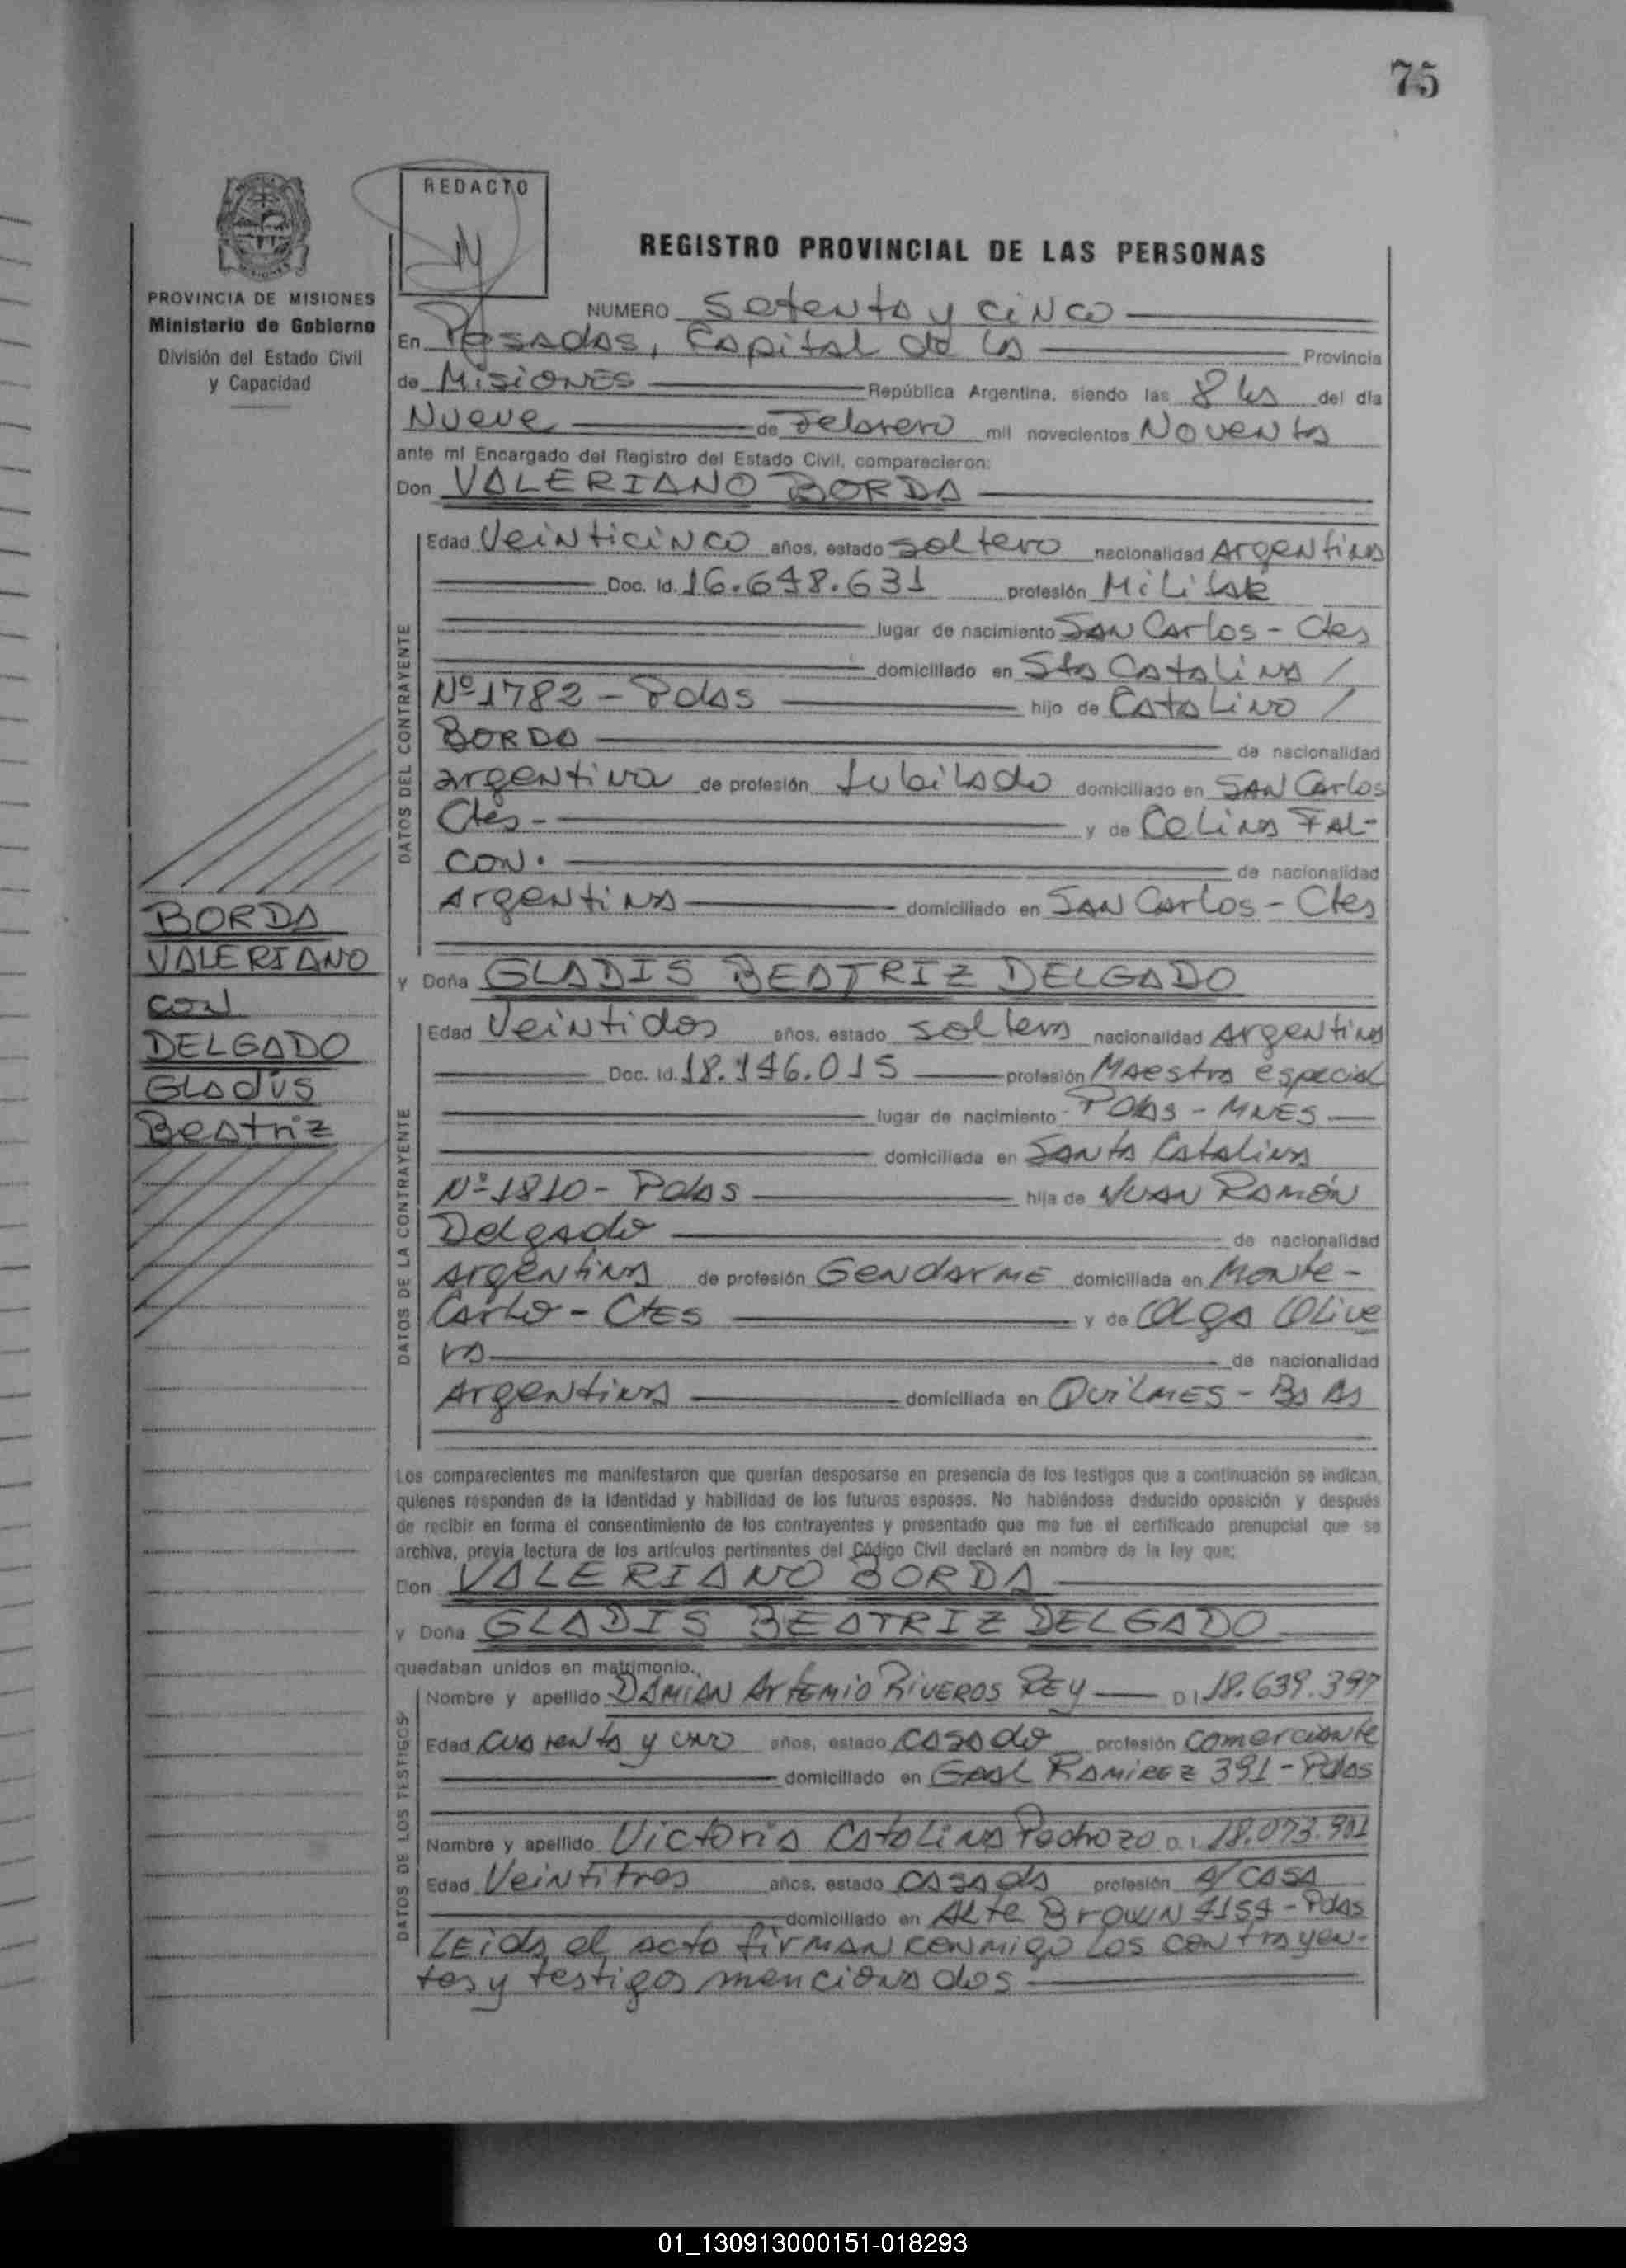 75
REDACTO
REGISTRO PROVINCIAL DE LAS PERSONAS
PROVINCIA DE MISIONES
Ministerio de Gobierno
División del Estado Civil
y Capacidad
NUMERO Setenta y cinco
En Posadas, Capital de la Provincia
de Misiones República Argentina, siendo las 8 hs del día
Nueve de Febrero mil novecientos Noventa
ante mí Encargado del Registro del Estado Civil, comparecieron:
Don VALERIANO BORDA
DATOS DEL CONTRAYENTE
Edad Veinticinco años, estado soltero nacionalidad Argentina
Doc. Id. 16.648.631 profesión Militar
lugar de nacimiento San Carlos - Ctes
domiciliado en Sta Catalina /
Nº 1782 - Pdas hijo de Catalino /
BORDA de nacionalidad
argentina de profesión Jubilado domiciliado en San Carlos
Ctes - y de Celina FAL-
CON. de nacionalidad
Argentina domiciliado en San Carlos - Ctes
BORDA
VALERIANO
con
DELGADO
Gladis
Beatriz
y Doña GLADIS BEATRIZ DELGADO
DATOS DE LA CONTRAYENTE
Edad Veintidos años, estado soltera nacionalidad Argentina
Doc. Id. 18.146.015 profesión Maestra especial
lugar de nacimiento Pdas - MNES
domiciliada en Santa Catalina
Nº 1810 - Pdas hija de Juan Ramón
Delgado de nacionalidad
Argentina de profesión Gendarme domiciliada en Monte-
Carlo - Ctes y de Olga Olive
ra de nacionalidad
Argentina domiciliada en Quilmes - Bs As
Los comparecientes me manifestaron que querían desposarse en presencia de los testigos que a continuación se indican,
quienes responden de la identidad y habilidad de los futuros esposos. No habiéndose deducido oposición y después
de recibir en forma el consentimiento de los contrayentes y presentado que me fue el certificado prenupcial que se
archiva, previa lectura de los artículos pertinentes del Código Civil declaré en nombre de la ley que:
Don VALERIANO BORDA
y Doña GLADIS BEATRIZ DELGADO
quedaban unidos en matrimonio.
DATOS DE LOS TESTIGOS
Nombre y apellido Damian Artemio Riveros Rey D.I. 18.639.397
Edad Cuarenta y uno años, estado casado profesión comerciante
domiciliado en Gral Ramirez 391 - Pdas
Nombre y apellido Victoria Catalina Pedrozo D.I. 18.073.901
Edad Veintitres años, estado casada profesión A/CASA
domiciliado en Alte Brown 4154 - Pdas
Leida el acta firman conmigo los contrayen-
tes y testigos mencionados
01_130913000151-018293